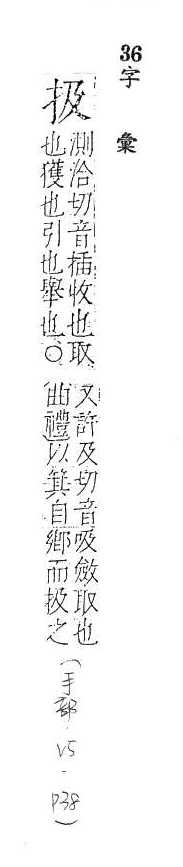 36字 彙
扱
測洽切音插收也取
也獲也引也舉也○
又許及切音吸斂取也
曲禮以箕自鄉而扱之
(手部 V5 - P38)